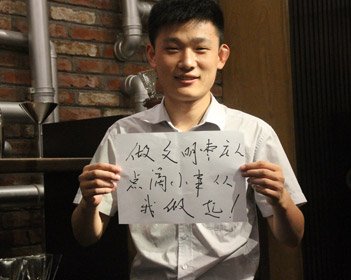 做文明枣庄人
点滴小事从
我做起！